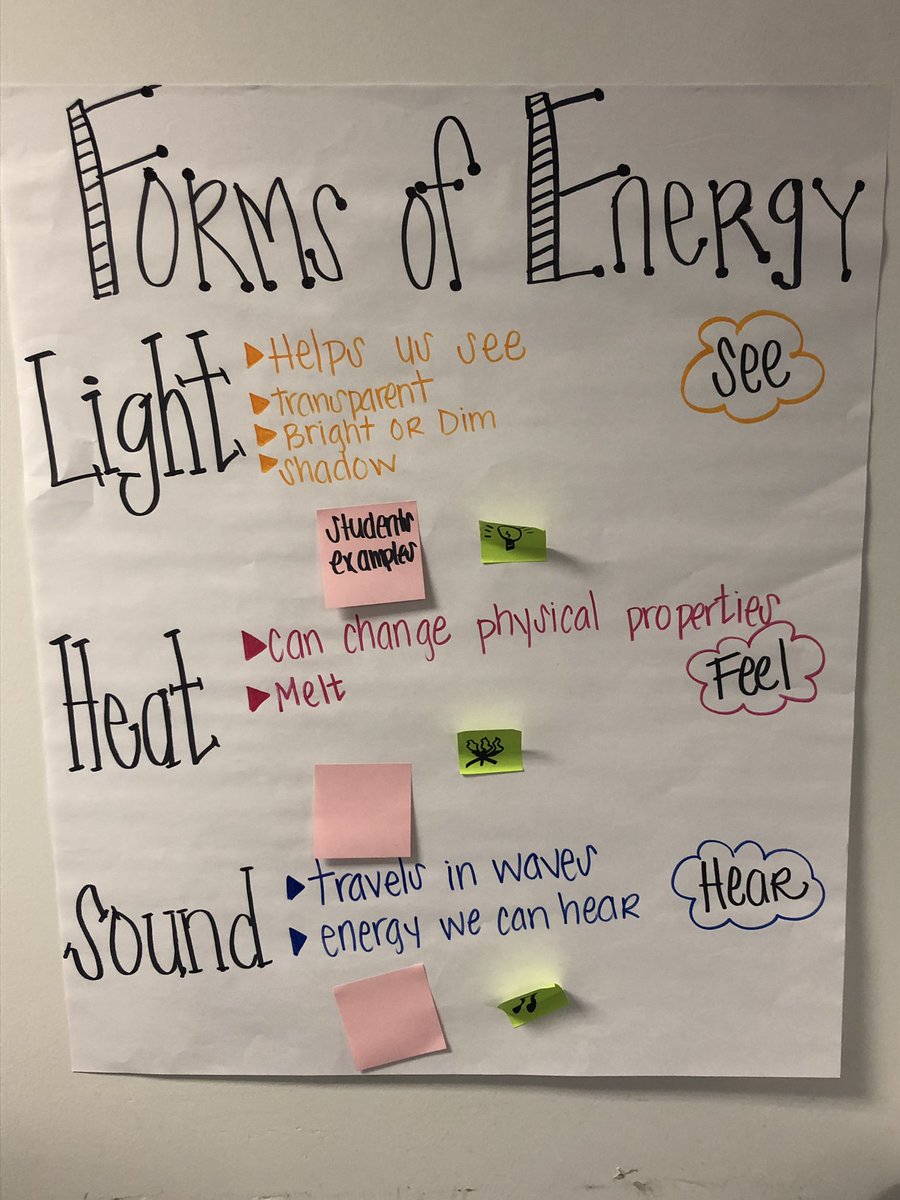 Forms of Energy
Light
Helps us see
transparent
Bright or Dim
shadow
see
students
examples
Heat
can change physical properties
Melt
Feel
Sound
travels in waves
energy we can hear
Hear